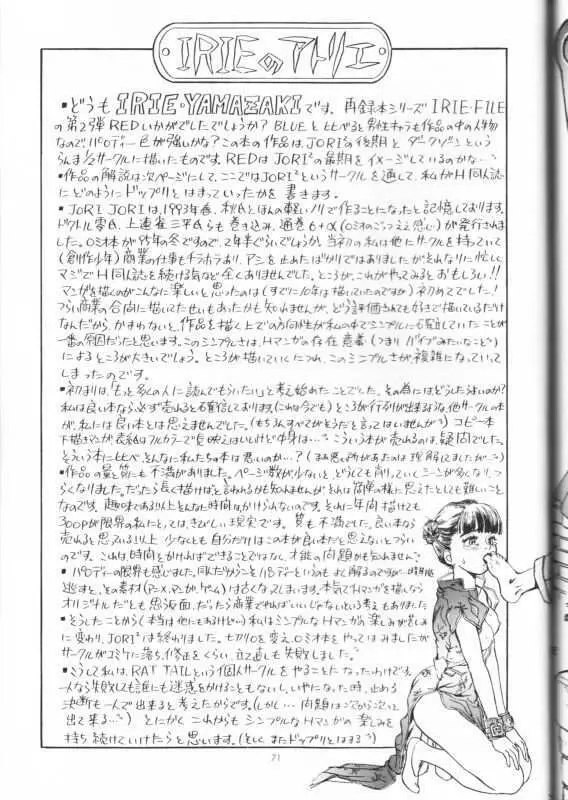 IRIEのアトリエ
・どうもIRIE・YAMAZAKIです。再録本シリーズIRIE-FILE
の第2弾REDいかがでしたでしょうか?BLUEと比べると男性キャラも作品の中の人物
なのでパロディー色が強いかな?この本の作品は、JORI²の後期とダークゾーンという
らんま1/2サークルに描いたものです。REDはJORI²の最期をイメージしているのかな…
・作品の解説は次ページにして、ここではJORI²というサークルを通して、私がH同人誌
にどのようにドップリとはまっていったかを書きます。
・JORI JORIは、1993年春、ほんの軽いノリで作ることになったと記憶しております。
ドクトル零氏、上連雀三平氏らも巻き込み、通巻6+α
が発行されま
した。
が95年の冬ですので、2年半ぐらいでしょうか。当初の私は他にサークルを持っていて
(創作少年)商業の仕事もチラホラあり、アシを止めたばかりではありましたがそれなりに忙しく
マジでH同人誌を続ける気など全くありませんでした。ところが、これがやってみるとおもしろい!!
マンガを描くのがこんなに楽しいと思ったのは(すでに10年は描いていたのですが)初めてでした!
つらい商業の合間に描いてたせいもあったかも知れませんが、どう評価されても好きで描いているだけ
なんだから、かまわないと、作品を描く上での方向性が私の中でシンプルに確立していたことが
一番の原因だったと思います。このシンプルさは、Hマンガの存在意義(つまりバイブみたいなこと)
によるところが大きいでしょう。ところが描いていくにつれ、このシンプルさが複雑になっていって
しまったのです。
・初まりは、「もっと多くの人に読んでもらいたい」と考え始めたことでした。その為にはどうしたらよいのか?
私は良い本なら必ず売れると確信しております。(これは今でも)ところが行列が出来るような他サークルの本
が、私には良い本とは思えませんでした。(もちろんすべてがそうだと言ってはいませんが)コピー本
下描きマンガ、表紙はフルカラーで見映えはいいけど中身は…こういう本が売れるのは、疑問でした。
そういう本に比べ、そんなに私たちの本は悪いのか…?(まあ悪い所があったのは理解してましたが…)
・作品の量と質にも不満がありました。ページ数が少ないと、どうしても削りていくシーンが多くなり、つ
らくなりました。だったら長く描けばと言われるかも知れませんが、それは簡単の様に思えたとしても難しいこと
なのです。趣味である以上そんなに時間はかけられないのです。それに年間描けても
300Pが限界の私にとっては、きびしい現実です。質も不満でした。良い本なら
売れると思っている以上、少なくとも自分だけはこの本が良い本だと思えないとつらい
のです。これは時間をかければできることではなく、才能の問題かも知れません?
・パロディーの限界も感じました。同人だからこそパロディーというのもよく解るのですが一時期
逃すと、その素材(アニメ、マンガ、ゲーム)は古くなってしまいます。本気でHマンガを描くなら
オリジナルだとも思う反面、だったら商業でやればいいじゃないという考えもありました
・そうしたことから(本当は他にもあるけど〜)私はシンプルなHマンガが、楽しみが苦しみ
に変わり、JORI²は終わりました。
を変え、
本をやってはみましたが
サークルがコミケに落ち、修正をくらい、立て直しも失敗しました。
・こうして私は、RAT TAILという個人サークルをやることになったわけです。
一人なら失敗しても誰にも迷惑をかけることもないし、いやになった時、止める
決断も一人で出来ると考えたからです。(しかし…問題は次から次へと
出て来る…)とにかくこれからもシンプルなHマンガの楽しみを
持ち続けていけたらと思います。(そして、またドップリとはまる)
71